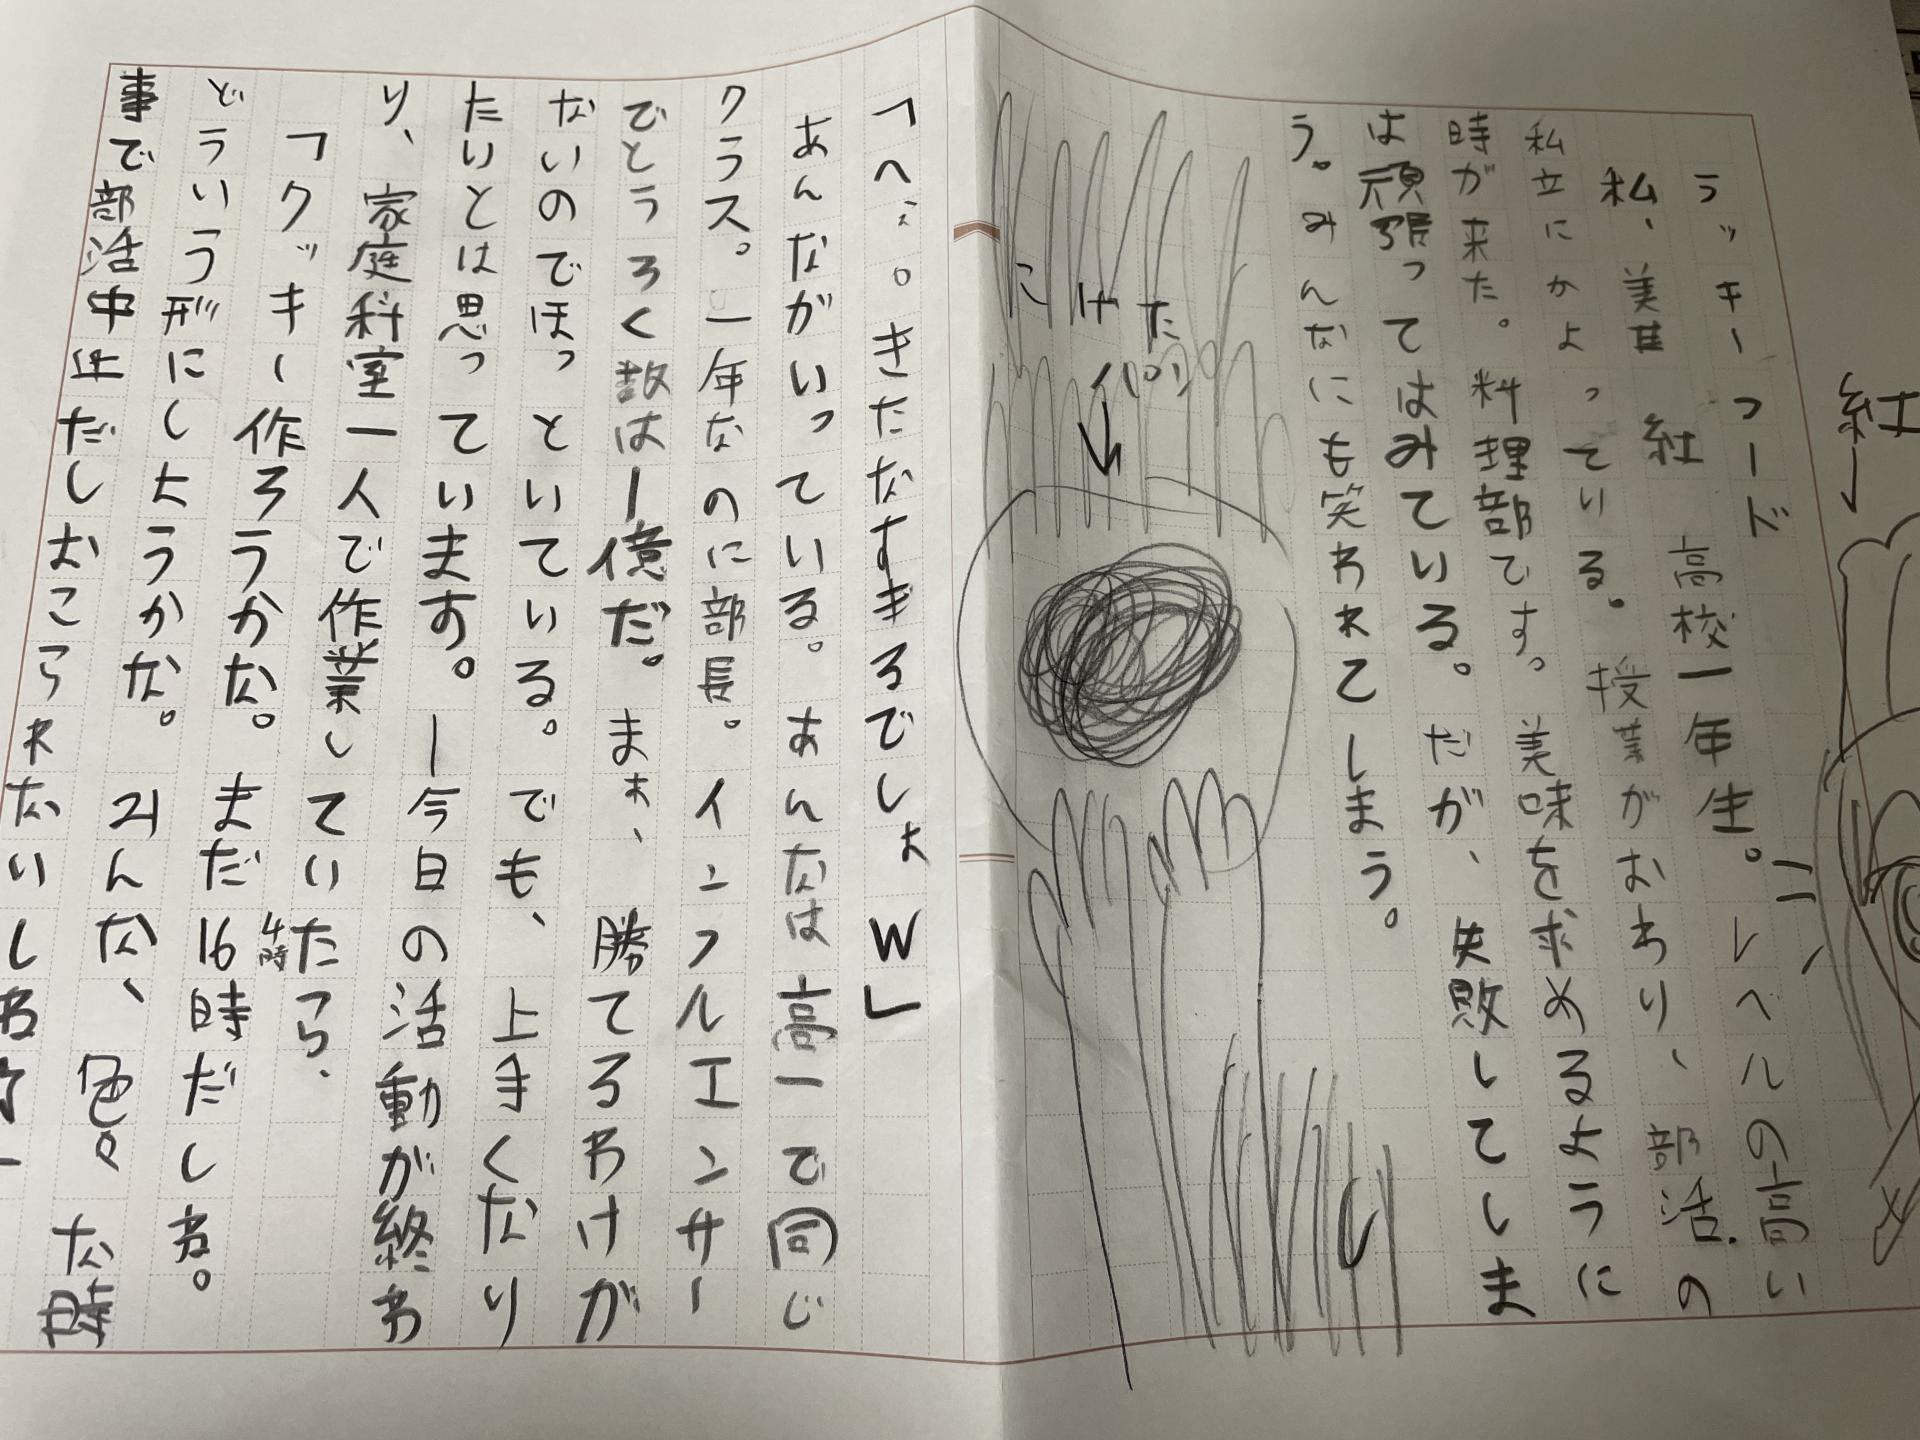 紅
ラッキーフード
私、美甘 紅 高校一年生。レベルの高い
私立にかよっている。授業がおわり、部活の
時が来た。料理部です。美味を求めるように
は頑張ってはみている。だが、失敗してしま
う。みんなにも笑われてしまう。
こげた
パン
「へぇ。きたなすぎるでしょW」
あんながいっている。あんなは高一で同じ
クラス。一年なのに部長。インフルエンサー
でとうろく数は1億だ。まぁ、勝てるわけが
ないのでほっといている。でも、上手くなり
たいとは思っています。ー今日の活動が終わ
り、家庭科室一人で作業していたら、
4時
「クッキー作ろうかな。まだ16時だしね。
どういう形にしようかな。みんな、色々な
事で部活中止だしおこられないしねぇー